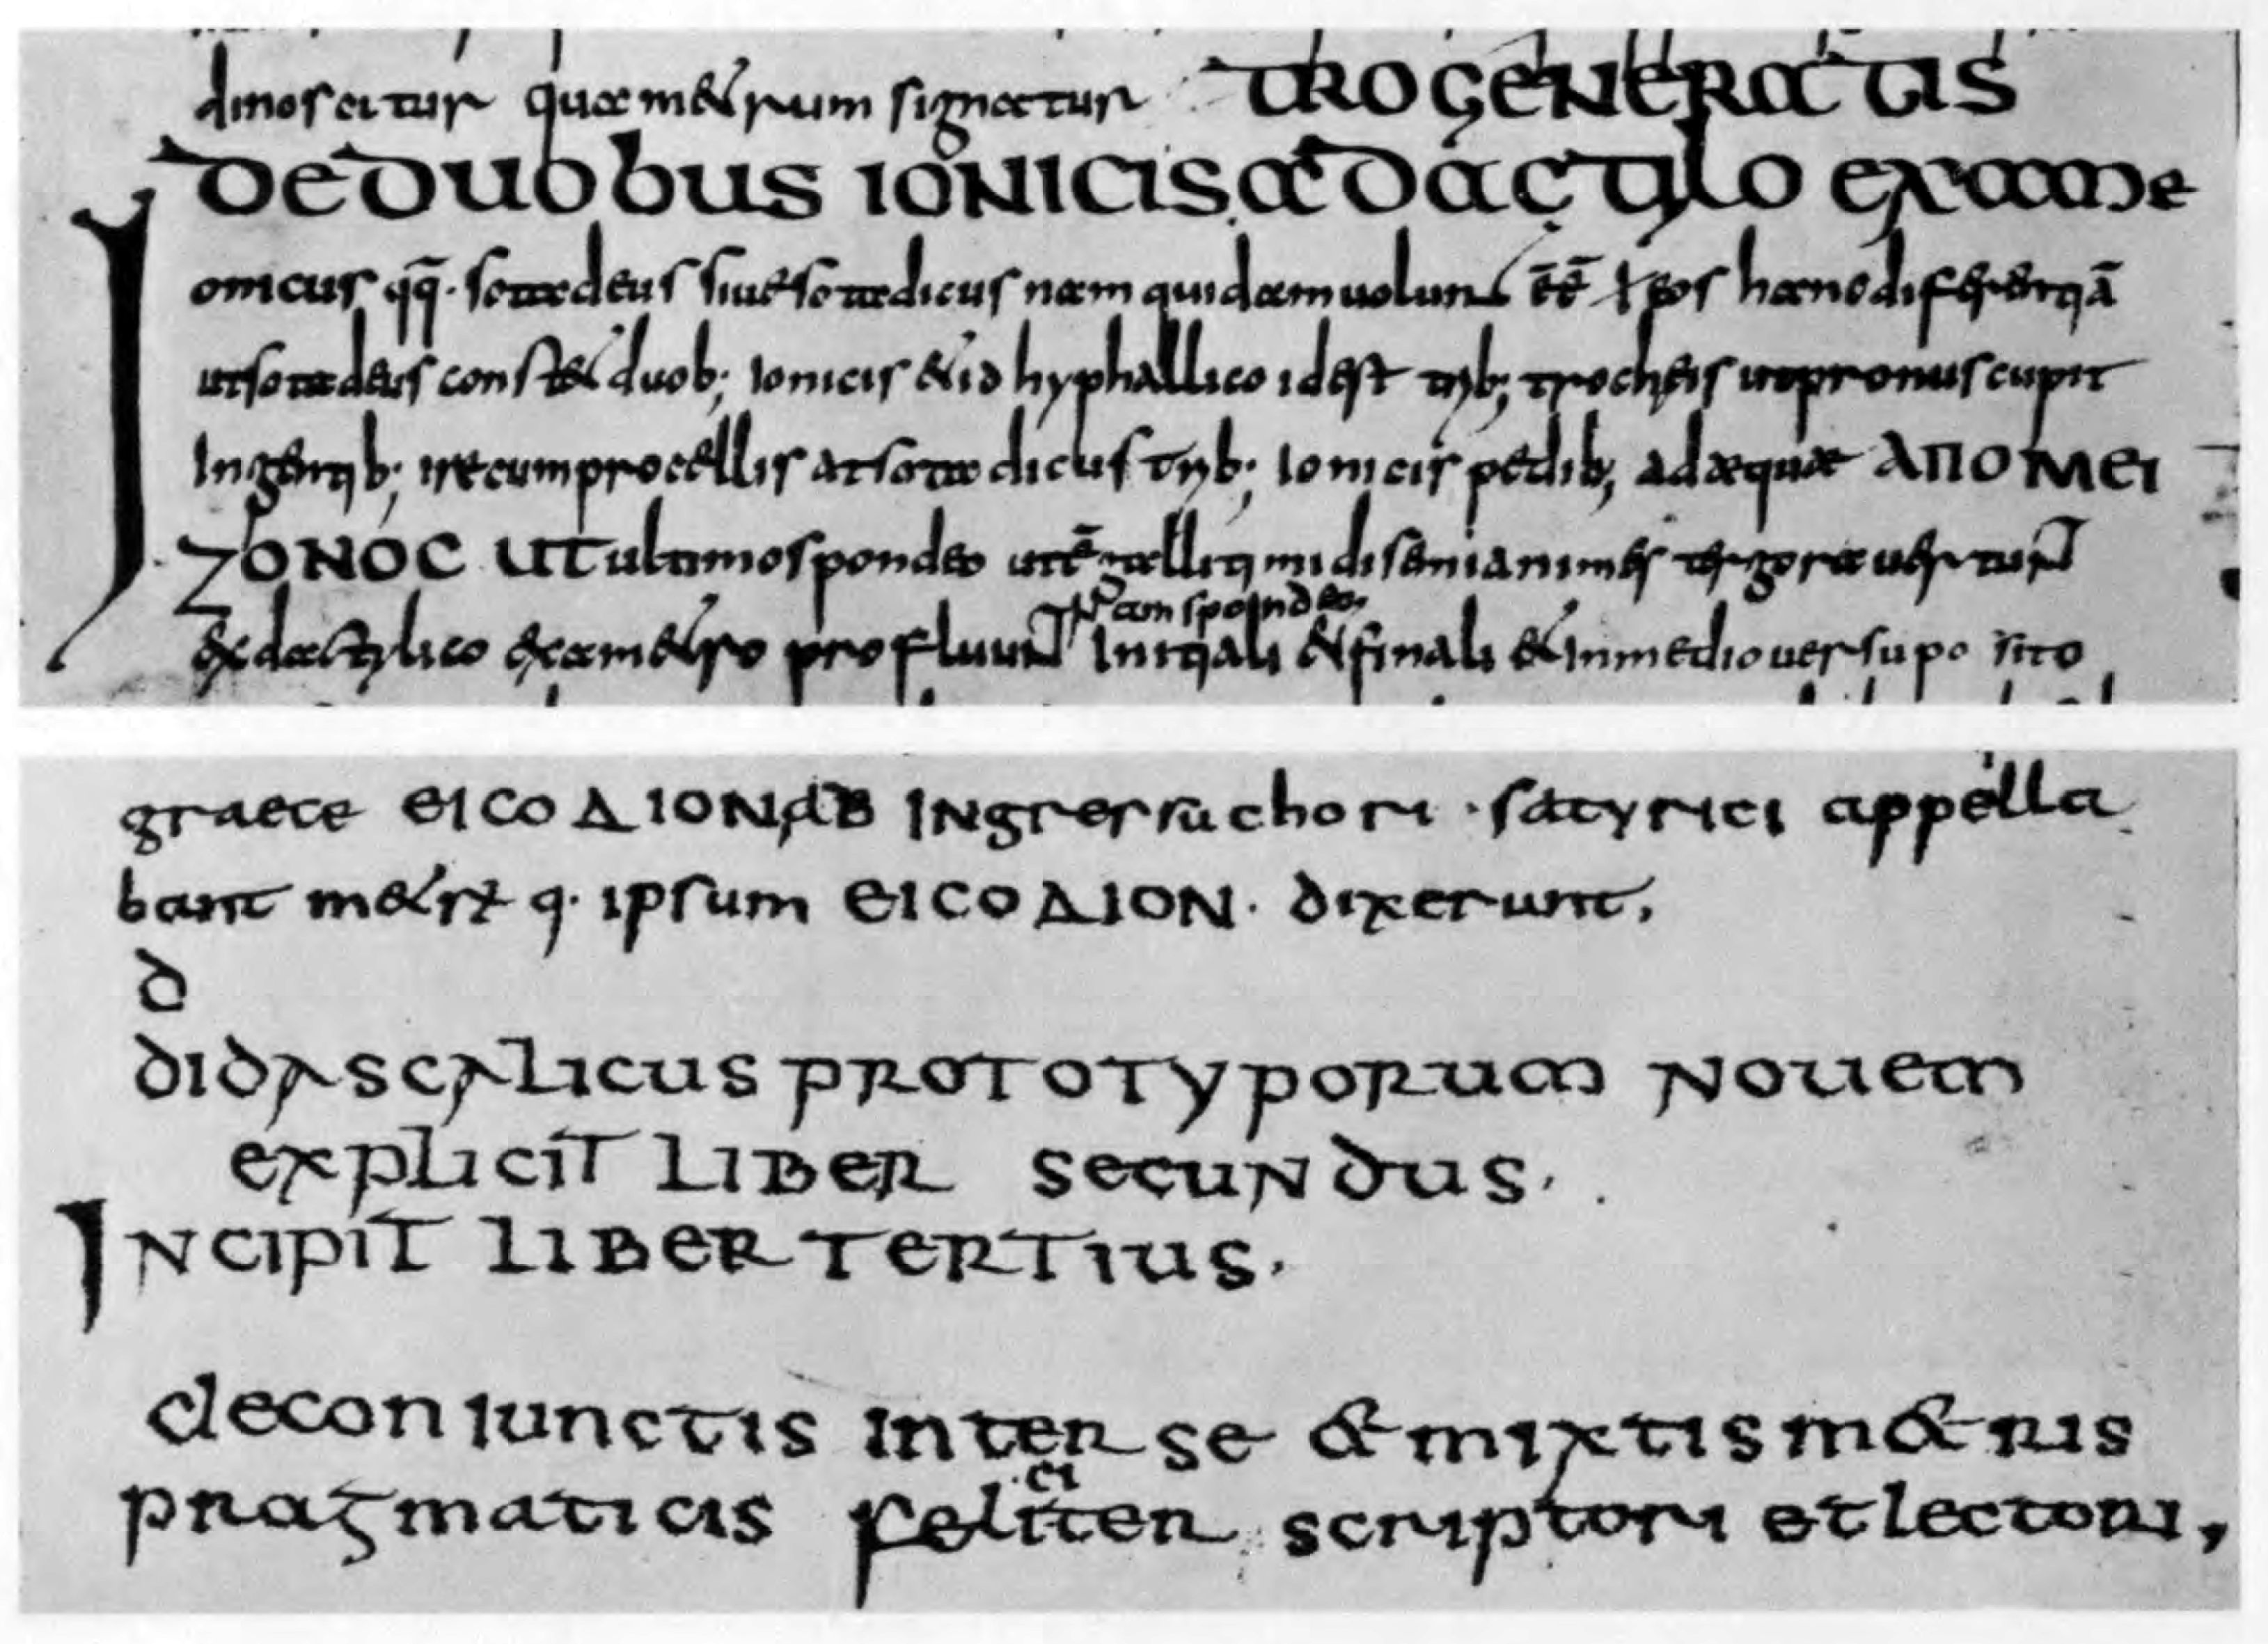 dinoscitur quae metrum signatur TROGENERATIS
DE DUOBUS IONICIS A DACTYLO EXAME
onicus qq̄· sotadeus siue sotadicus nam quidam uolunt ēē hanc
ut sotadeus constet duob; ionicis et id hyphallico id est trib; trocheis ut pronus cupit
ingentib; ire cum procellis at sotadicus trib; ionicis pedib; adaeque ΑΠΟ ΜΕΙ
ΖΟΝΟC UT ultimo spondeo semianimes tergora uertunt
etiam spondeo,
ex dactylico exametro profluunt initiali et finali et in medio uersu posito
graece ΕΙCΟΔΙΟΝ AB INgressu chori · satyrici appella
bant metrq. ipsum ΕΙCΟΔΙΟΝ· dixerunt,
d
DIDASCALICUS PROTOTYPORUM NOUEM
EXPLICIT LIBER SECUNDUS·
INCIPIT LIBER TERTIUS·
de coniunctis inter se & mixtis m&ris
ci
pragmaticis feliter scriptori et lectori,